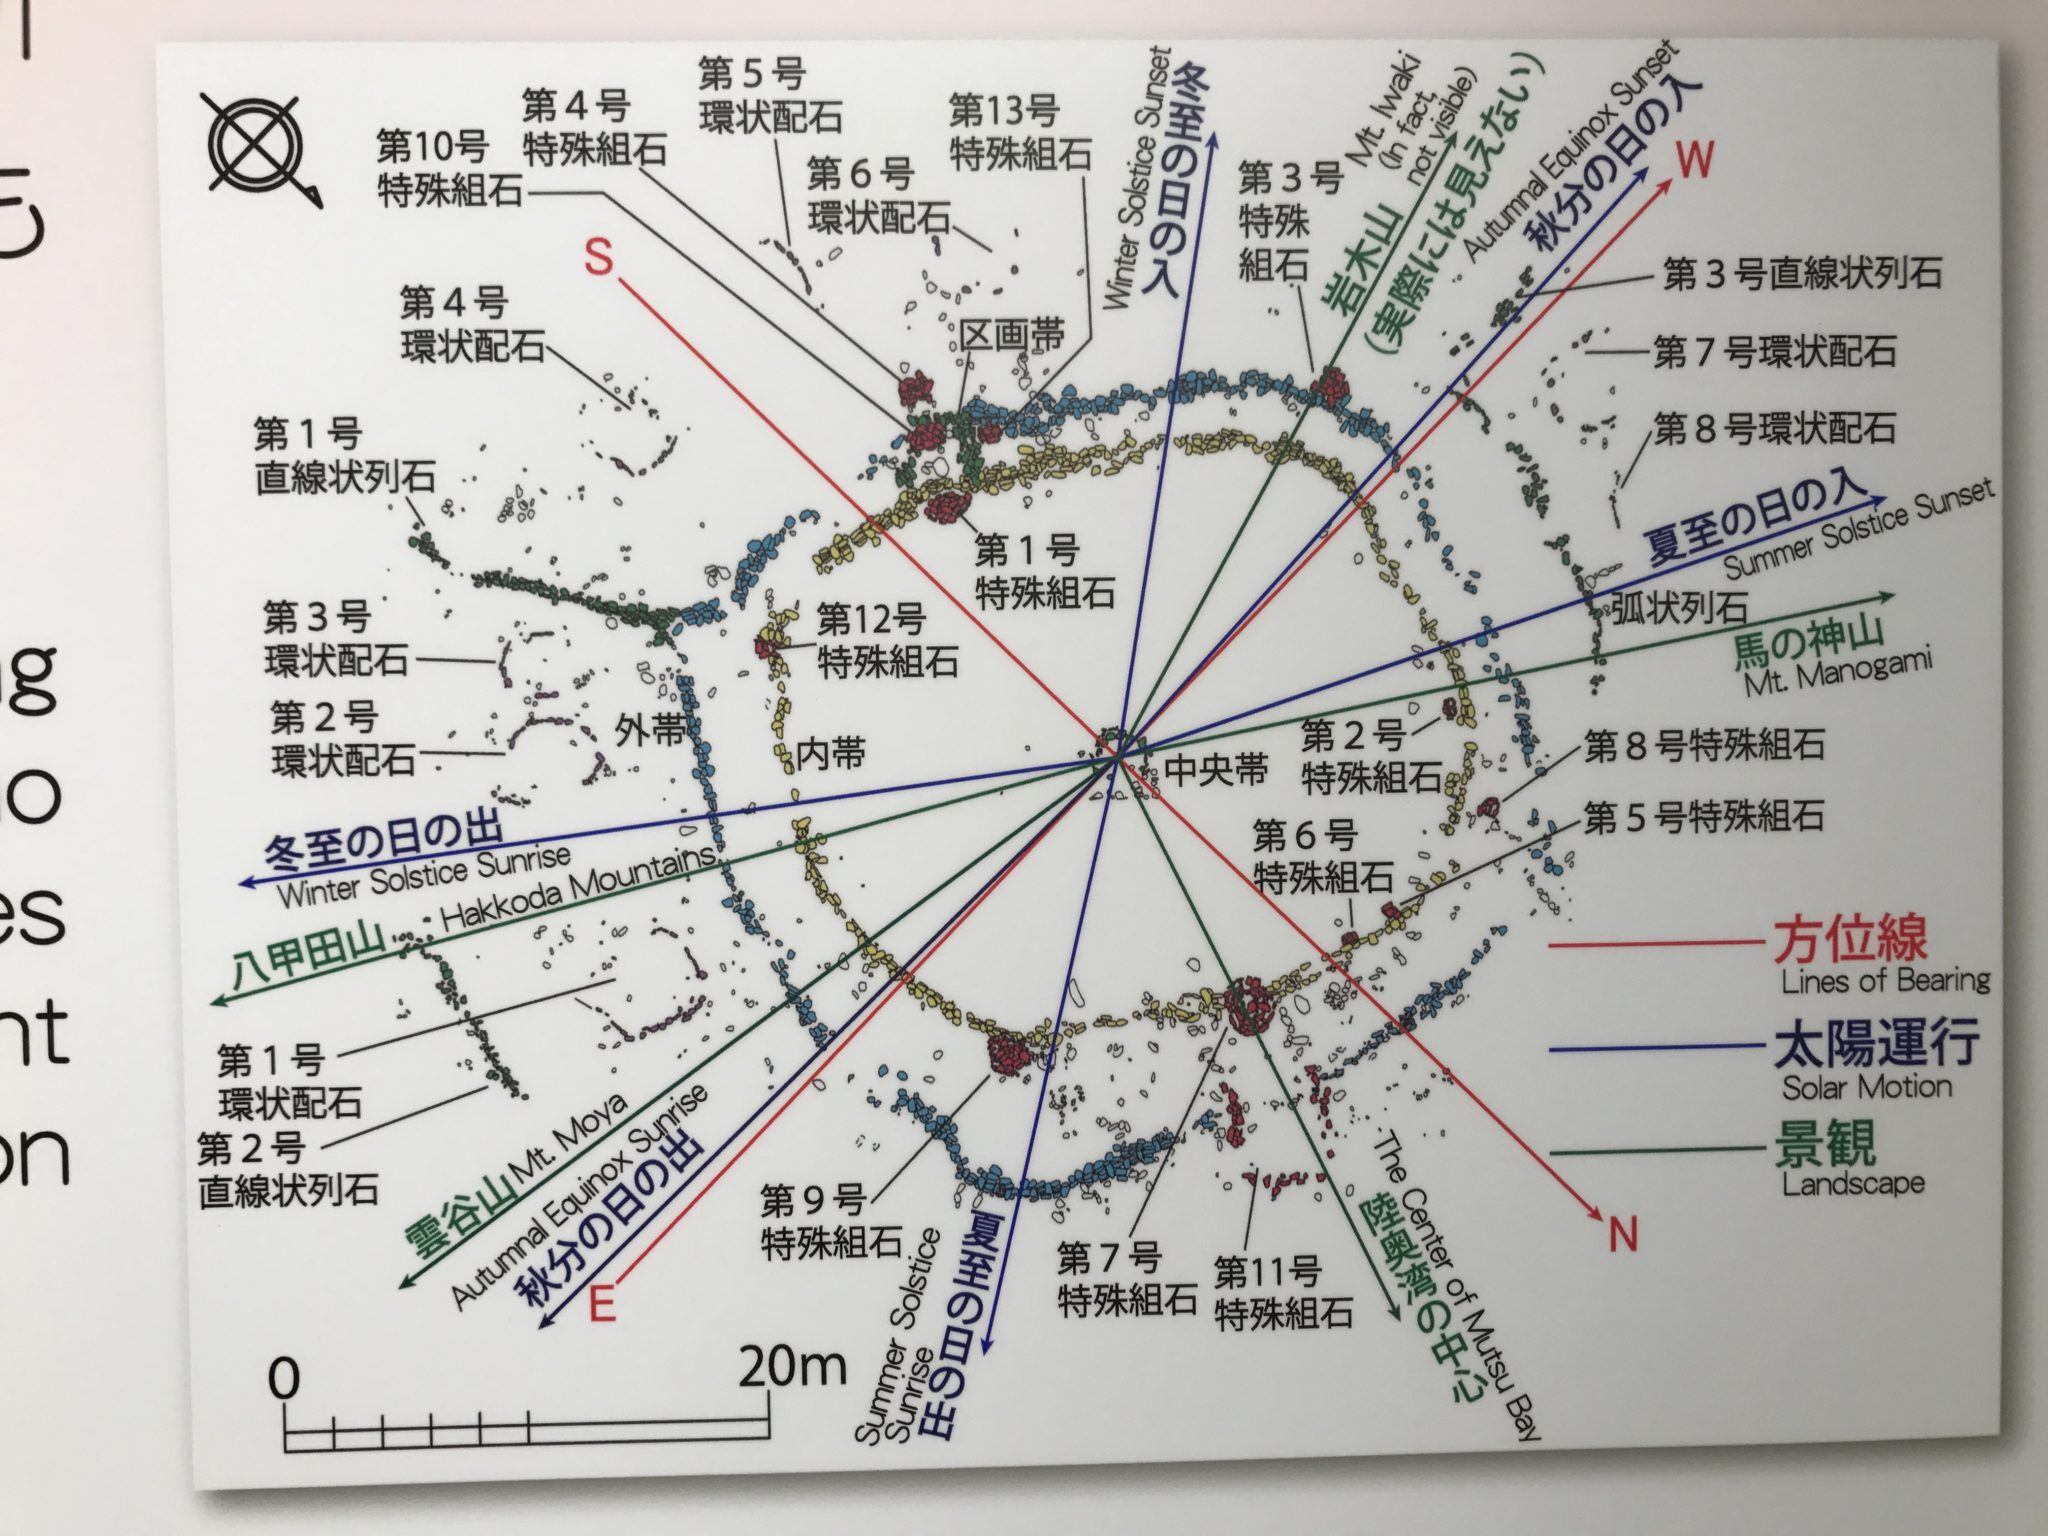 第5号
環状配石
第4号
特殊組石
第13号
特殊組石
第10号
特殊組石
第6号
環状配石
冬至の日の入
Winter Solstice Sunset
第3号
特殊
組石
Mt. Iwaki
(In fact,
not visible)
岩木山
(実際には見えない)
Autumnal Equinox Sunset
秋分の日の入
W
S
第3号直線状列石
第4号
環状配石
区画帯
第7号環状配石
第8号環状配石
第1号
直線状列石
夏至の日の入
Summer Solstice Sunset
第1号
特殊組石
弧状列石
馬の神山
Mt. Manogami
第3号
環状配石
第12号
特殊組石
第2号
環状配石
外帯
内帯
中央帯
第2号
特殊組石
第8号特殊組石
第5号特殊組石
第6号
特殊組石
冬至の日の出
Winter Solstice Sunrise
八甲田山
Hakkoda Mountains
方位線
Lines of Bearing
太陽運行
Solar Motion
景観
Landscape
第1号
環状配石
第2号
直線状列石
雲谷山 Mt. Moya
Autumnal Equinox Sunrise
秋分の日の出
E
第9号
特殊組石
Summer Solstice
Sunrise
夏至の日の出
第7号
特殊組石
第11号
特殊組石
The Center of Mutsu Bay
陸奥湾の中心
N
0
20m
es
on